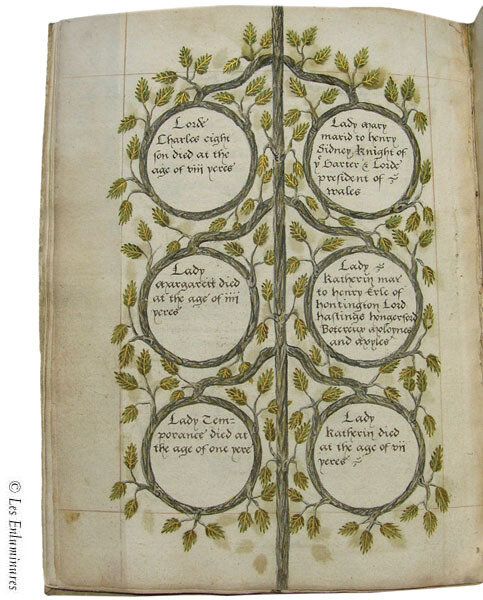 Lorde
Charles eight
son died at the
age of viii yeres
Lady mary
marid to henry
Sidney Knight of
y Garter & Lorde
president of
wales
Lady
margarett died
at the age of iiii
yeres
Lady
Katherin mar
to henry Erle of
hontington Lord
hastings hongerford
Botereux moloynes
and moyles
Lady Tem-
porance died at
the age of one yere
Lady
Katherin died
at the age of vii
yeres
© Les Enluminures